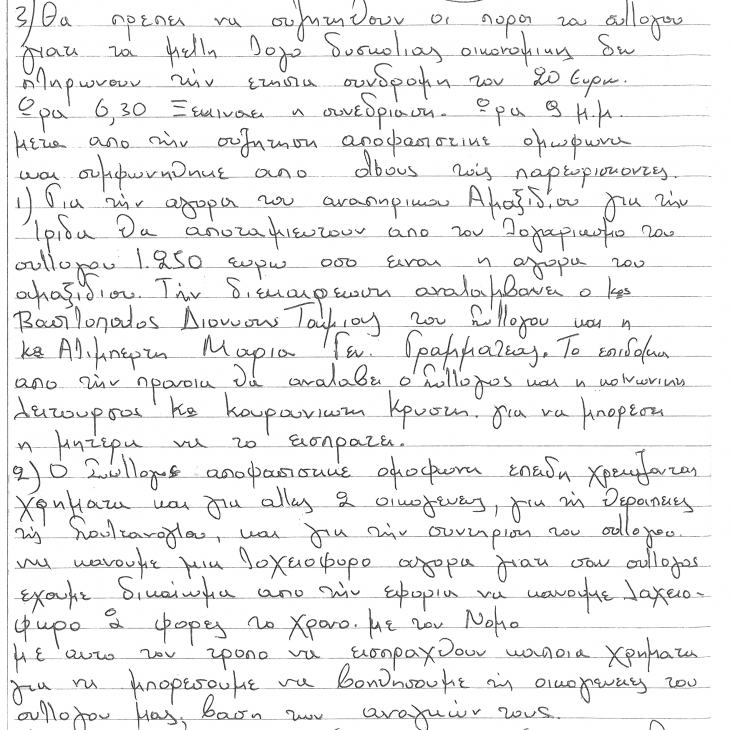 3) Θα πρεπει να συζητηθουν οι ποροι του συλλογου
γιατι τα μελη λογο δυσκολιας οικονομικης δεν
πληρωνουν την ετησια συνδρομη των 20 Ευρω.
Ωρα 6,30 Ξεκιναει η συνεδριαση. Ωρα 9 μ.μ.
μετα απο την συζητηση αποφασιστικε ομωφωνα
και συμφωνηθηκε απο όλους τους παρευρισκοντες.
1) Για την αγορα του αναπηρικου Αμαξιδίου για την
Ιριδα θα αποταμιευτουν απο τον λογαριασμο του
συλλογου 1.250 ευρω οσο ειναι η αγορα του
αμαξιδιου. Την διεκπαιρεωση αναλαμβανει ο κος
Βασιλοπουλος Διονυσης Ταμιας του Συλλογου και η
κα Αλιμπερτη Μαρια Γεν. Γραμματεας. Το επιδομα
απο την προνοια θα αναλαβει ο Συλλογος και η κοινωνικη
λειτουργος κα Κουρανιωτη Κρυστη. για να μπορεση
η μητερα να το εισπραξει.
2) Ο Συλλογος αποφασιστηκε ομοφωνα επειδη χρειαζονται
χρηματα και για αλλες 2 οικογενειες, για τις θεραπειες
της Σουλτανογλου, και για την συντηριση του συλλογου.
να κανουμε μια λαχειοφορο αγορα γιατι σαν συλλογος
εχουμε δικαίωμα απο την εφορια να κανουμε λαχειο-
φορο 2 φορες το χρονο. με τον Νομο
με αυτο τον τροπο να εισπραχθουν καποια χρηματα
για να μπορεσουμε να βοηθησουμε τις οικογενειες του
συλλογου μας, βαση των αναγκών τους.